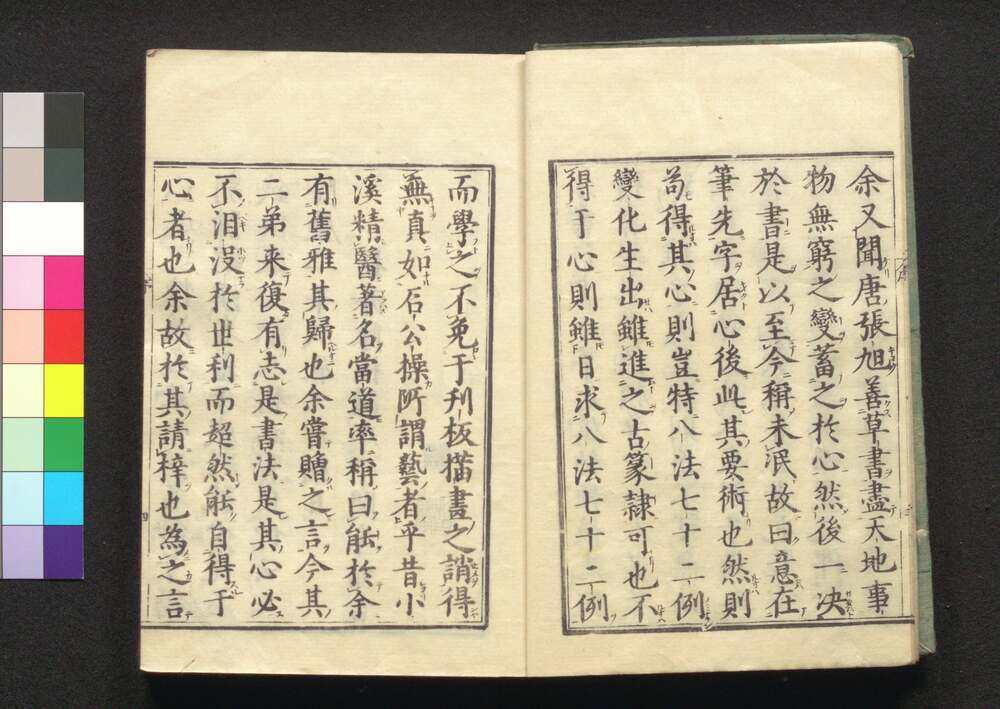 余又聞唐張旭善草書盡天地事
物無窮之變蓄之於心然後一决
於書是以至今稱未泯故曰意在
筆先字居心後此其要術也然則
苟得其心則豈特八法七十二例
變化生出雖進之古篆隸可也不
得于心則雖日求八法七十二例
而學之不免于刋板描畫之誚得
無真如石公操所謂藝者乎昔小
溪精醫著名當道率稱曰能於余
有舊雅其歸也余嘗贈之言今其
二弟来復有志是書法是其心必
不泪没於世利而超然能自得于
心者也余故於其請梓也為之言